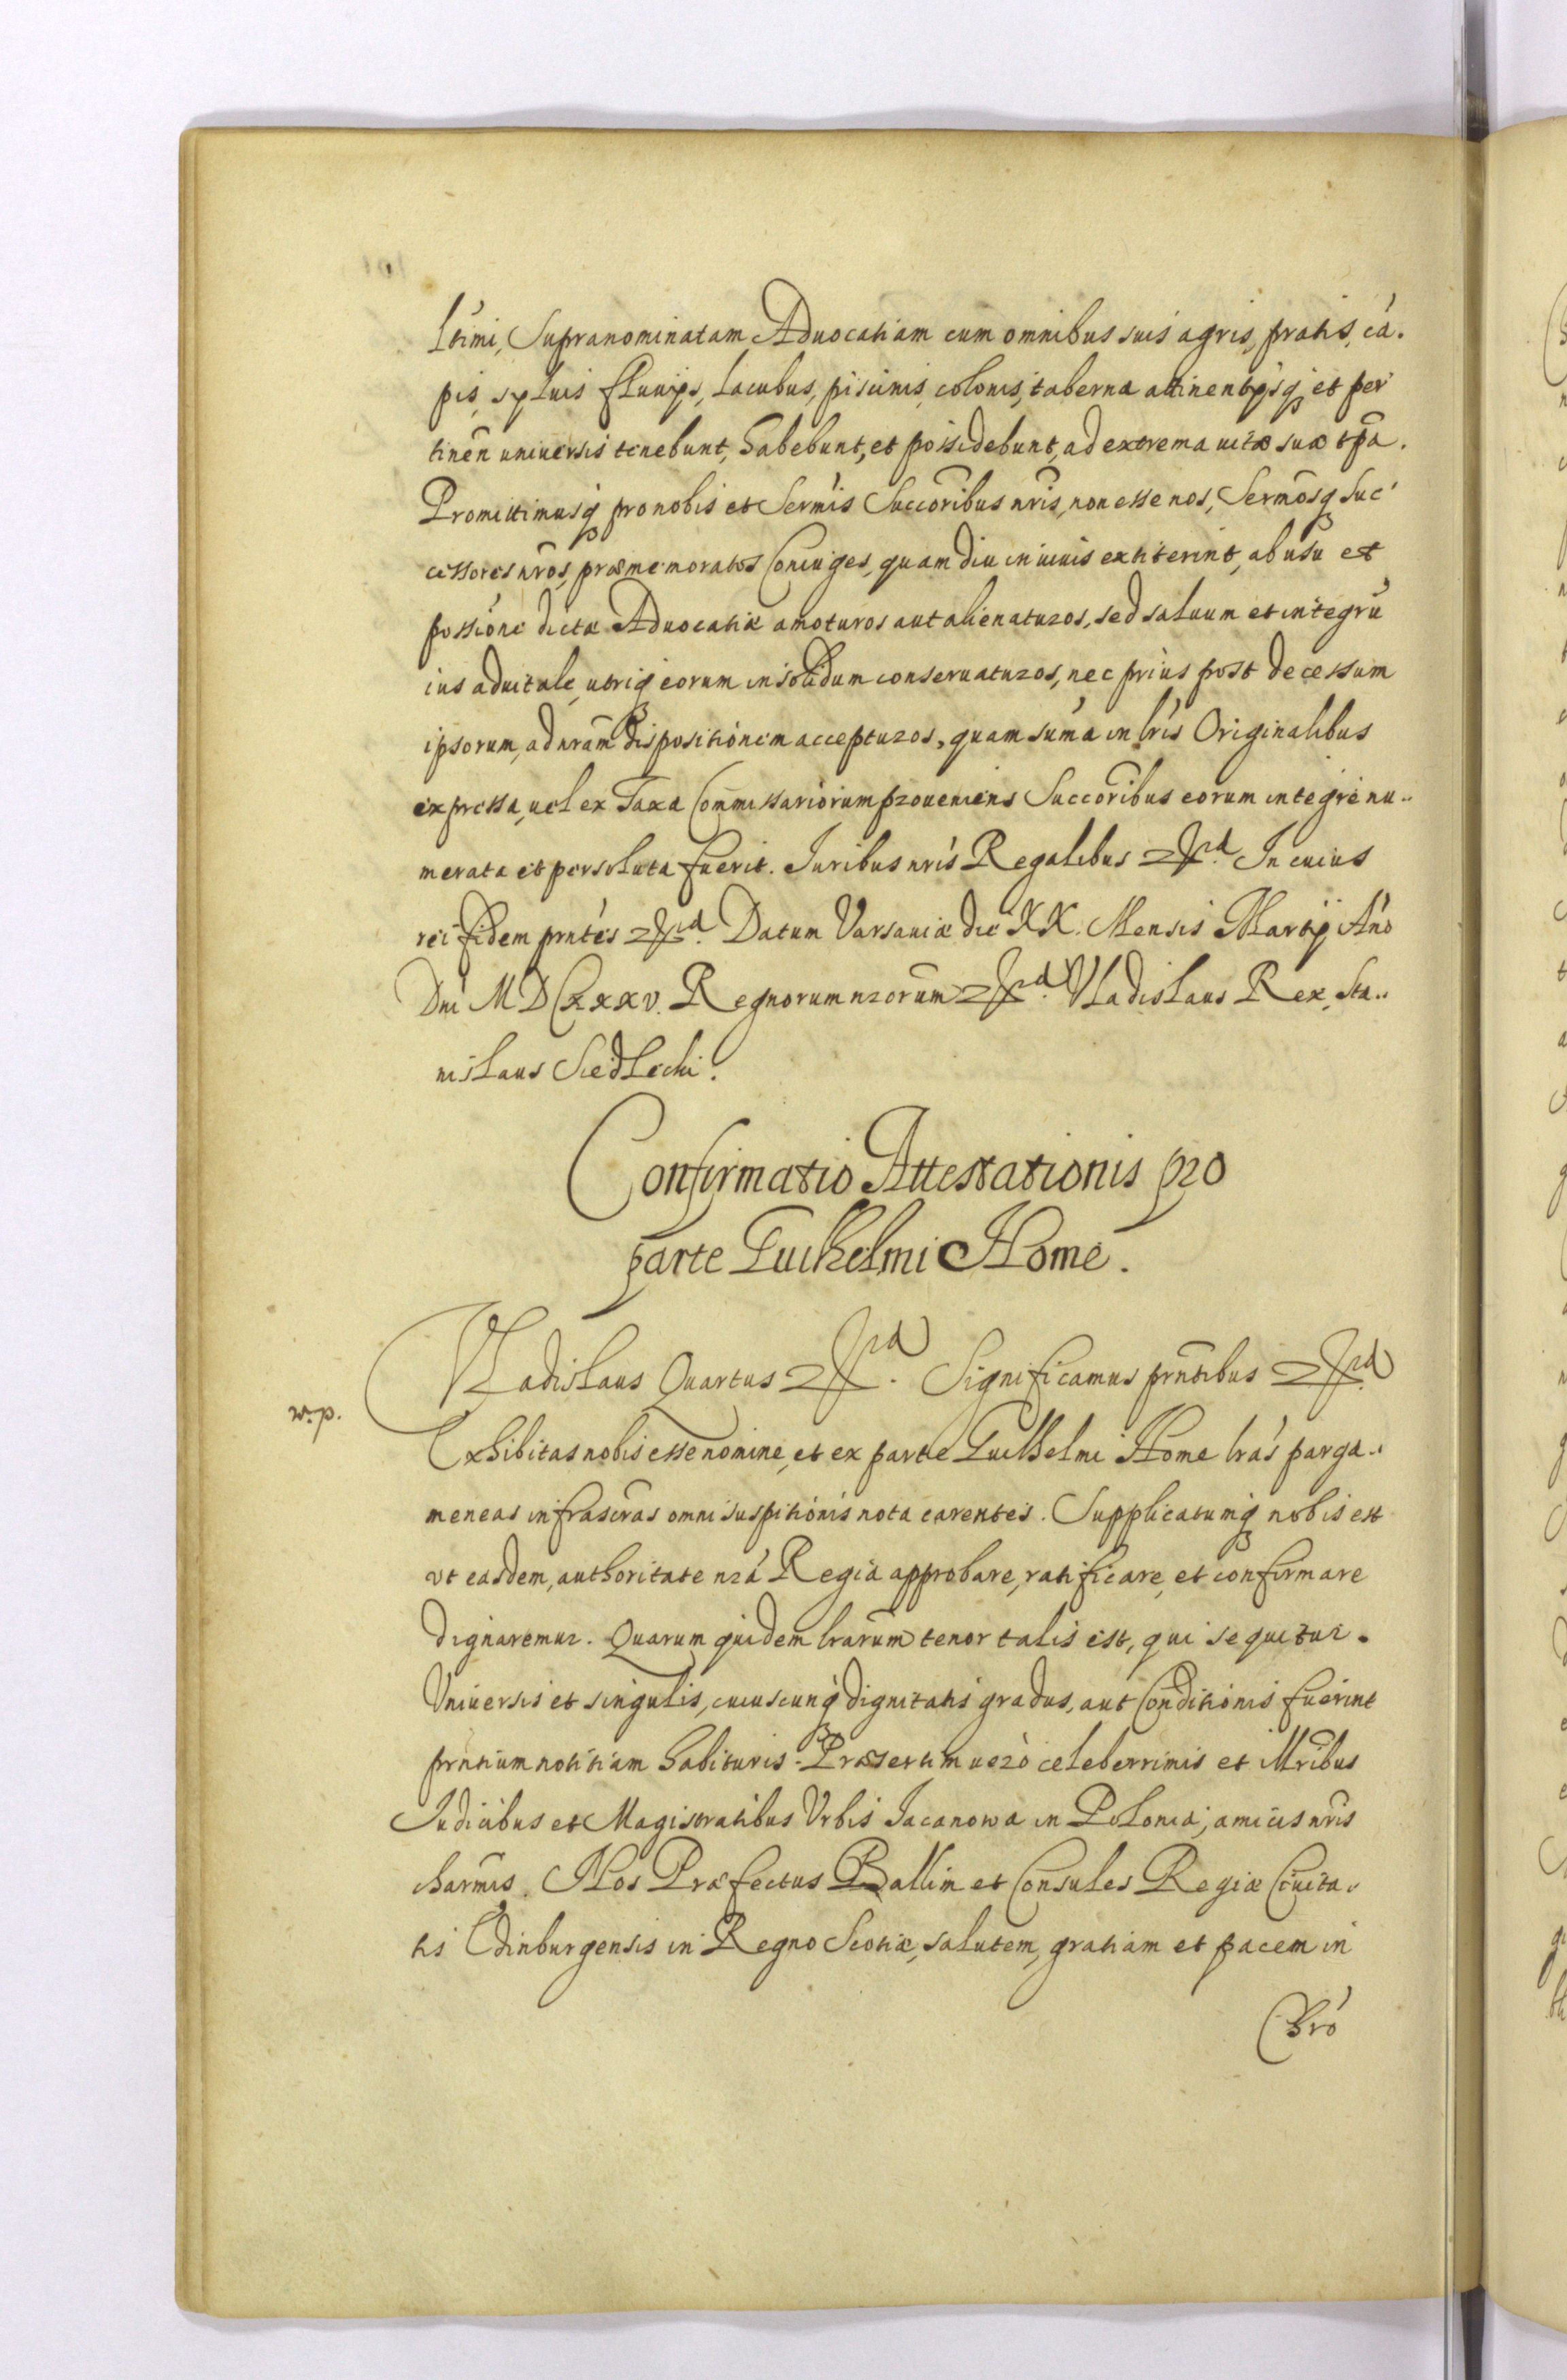 ltimi, Supranominatam Aduocatiam cum omnibus suis agris, pratis, cá-
pis, syluis fluuijs, lacubus, piscinis, colonis, taberna attinentijsq et per
tinen̄ uniuersis tenebunt, habebunt, et possidebunt, ad extrema uitæ suæ tp̄a.
Promittimusq pro nobis et Sermis Succoribus nris, non esse nos, Sermosq Suc
cessores nros, præmemoratos Coniuges, quam diu in uiuis extiterint, ab usu et
possione dictæ Aduocatiæ amoturos aut alienaturos, sed saluum et integrū
ius aduitale, utriq eorum in solidum conseruaturos, nec prius post decessum
ipsorum, ad nram dispositionem accepturos, quam suma in lris Originalibus
expressa, uel ex Taxa Commissariorum proueniens Succoribus eorum integre nu-
merata et persoluta fuerit. Iuribus nris Regalibus &c. In cuius
rei fidem prntes &c. Datum Varsauiæ die XX. Mensis Martij Ano
Dni MDCXXXV. Regnorum nrorum &c. Vladislaus Rex, Sta-
nislaus Siedlecki.
Confirmatio Attestationis pro
parte Guilhelmi Home.
Vladislaus Quartus &c. Significamus prntibus &c.
Exhibitas nobis esse nomine, et ex parte Guilhelmi Home lras parga-
meneas infrascras omni suspitionis nota carentes. Supplicatumq nobis est
vt easdem, authoritate nra Regia approbare, ratificare, et confirmare
dignaremur. Quarum quidem lrarum tenor talis est, qui sequitur.
Vniuersis et singulis, cuiuscunq dignitatis gradus, aut Conditionis fuerint
prntium notitiam habituris. Præsertim uero celeberrimis et Illribus
Iudicibus et Magistratibus Vrbis Iacanowa in Polonia, amicis nris
charmis. Nos Præfectus Balliui et Consules Regiæ Ciuita-
tis Edinburgensis in Regno Scotiæ, salutem, gratiam et pacem in
Chro